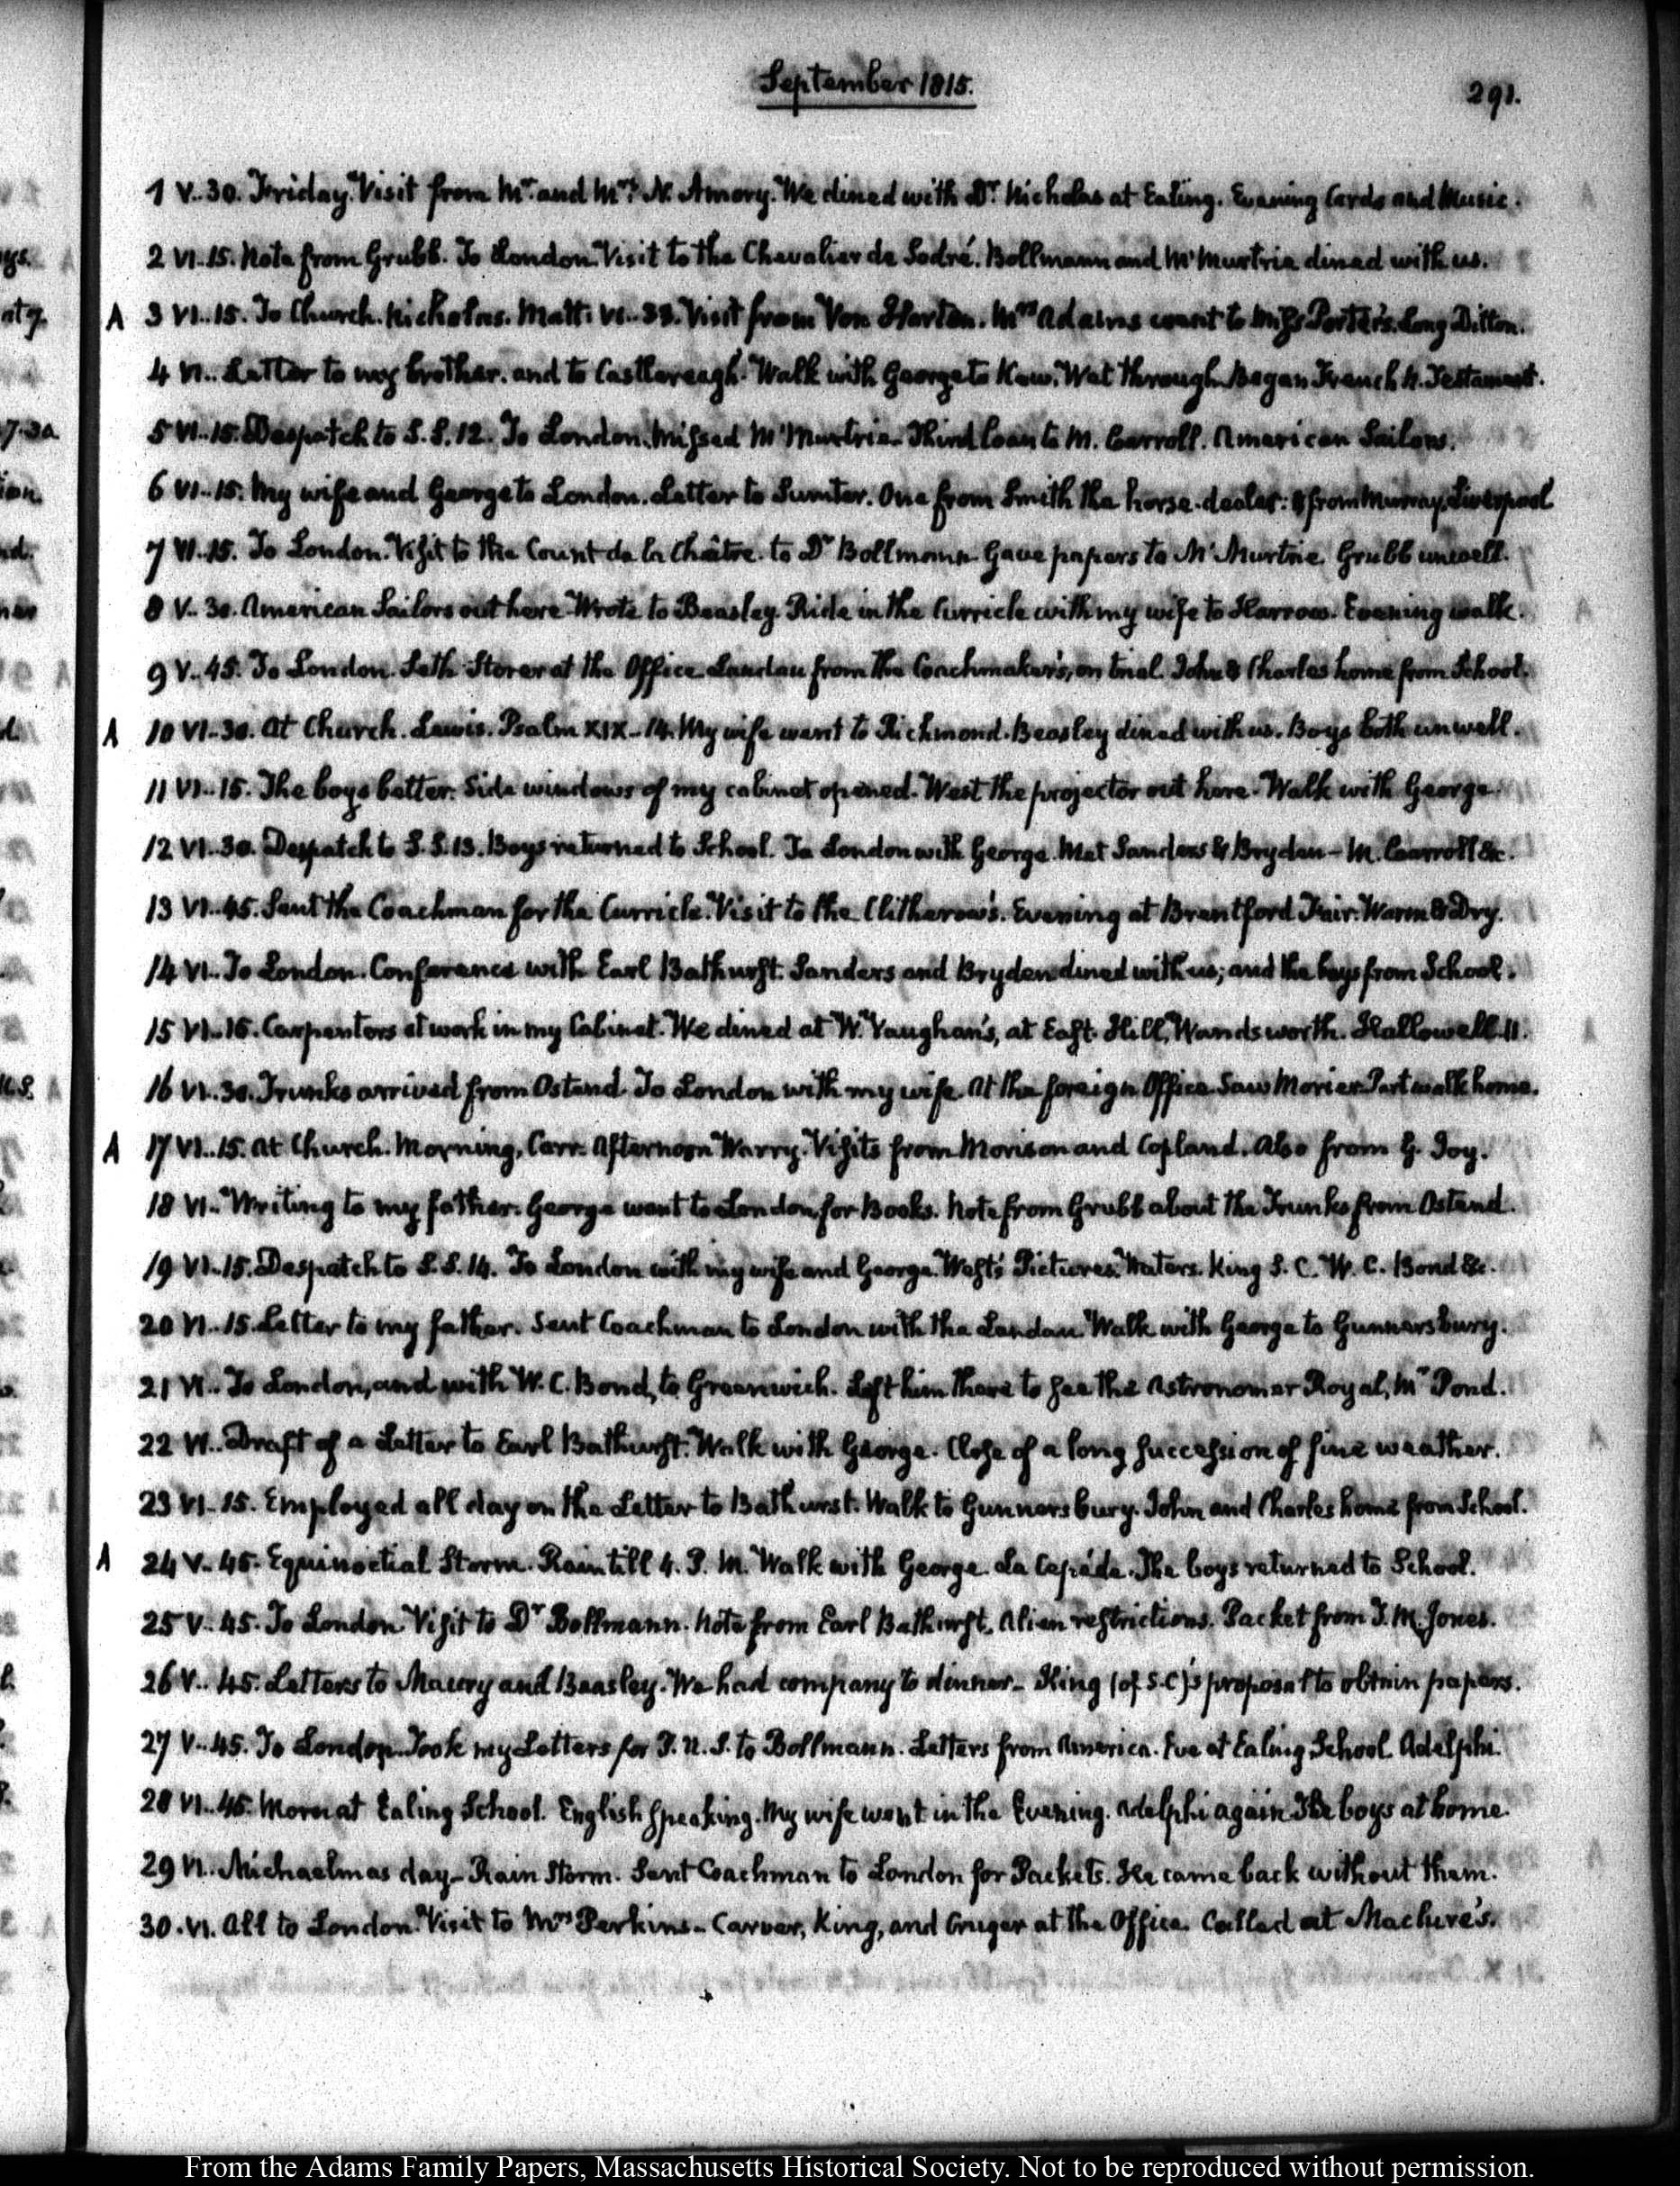 September 1815.
291.
1 V..30. Friday. Visit from Mr. and Mrs. N. Amory. We dined with Dr. Nicholas at Ealing. Evening Cards and Music.
2 VI..15. Note from Grubb. To London. Visit to the Chevalier de Sodré. Bollmann and McMurtrie dined with us.
A 3 VI..15. To Church. Nicholas. Matt: VI..33. Visit from Von Horten. Mrs Adams went to Miss Porter's. Long Ditton.
4 VI.. Letter to my brother. and to Castlereagh. Walk with George to Kew. Wet through. Began French N. Testament.
5 VI..15. Despatch to S. S. 12. To London. Missed McMurtrie. Third loan to M. Carroll. American Sailors.
6 VI..15. My wife and George to London. Letter to Sumter. One from Smith the horse-dealer: & from Murray, Liverpool
7 VI..15. To London. Visit to the Count de la Châtre. to Dr Bollmann. Gave papers to McMurtrie. Grubb unwell.
8 V..30. American Sailors out here. Wrote to Beasley. Ride in the Curricle with my wife to Harrow. Evening walk.
9 V..45. To London. Seth Storer at the Office. Landau from the Coachmaker's, on trial. John & Charles home from School.
A 10 VI..30. At Church. Lewis. Psalm XIX-14. My wife went to Richmond. Beasley dined with us. Boys both unwell.
11 VI..15. The boys better. Side windows of my cabinet opened. West the projector out here. Walk with George.
12 VI..30. Despatch to S. S. 13. Boys returned to School. To London with George. Met Sanders & Bryden — M. Carroll &c.
13 VI..45. Sent the Coachman for the Curricle. Visit to the Clitherow's. Evening at Brentford Fair. Warm & Dry.
14 VI.. To London. Conference with Earl Bathurst. Sanders and Bryden dined with us; and the boys from School.
15 VI..15. Carpenters at work in my Cabinet. We dined at W. Vaughan's, at East Hill, Wandsworth. Hallowell. 11.
16 VI..30. Trunks arrived from Ostend. To London with my wife. At the foreign Office. Saw Morier. Part walk home.
A 17 VI..15. At Church. Morning, Carr. Afternoon Warry. Visits from Morison and Copland. Also from G. Joy.
18 VI.. Writing to my father. George went to London for Books. Note from Grubb about the Trunks from Ostend.
19 VI..15. Despatch to S. S. 14. To London with my wife and George. West's Pictures. Waters. King S. C. W. C. Bond &c.
20 VI..15. Letter to my father. Sent Coachman to London with the Landau. Walk with George to Gunnersbury.
21 VI.. To London, and with W. C. Bond, to Greenwich. Left him there to see the Astronomer Royal, Mr Pond.
22 VI.. Draft of a Letter to Earl Bathurst. Walk with George. Close of a long succession of fine weather.
23 VI..15. Employed all day on the Letter to Bathurst. Walk to Gunnersbury. John and Charles home from School.
A 24 V..45. Equinoctial Storm. Rain till 4. P. M. Walk with George. La Cepéde. The boys returned to School.
25 V..45. To London. Visit to Dr Bollmann. Note from Earl Bathurst. Alien restrictions. Packet from T. M. Jones.
26 V..45. Letters to Maury and Beasley. We had company to dinner. King (of S.C)'s proposal to obtain papers.
27 V..45. To London. Took my Letters for P. U. S. to Bollmann. Letters from America. Eve at Ealing School. Adelphi.
28 VI..45. Morn at Ealing School. English speaking. My wife went in the Evening. Adelphi again. The boys at home.
29 VI.. Michaelmas day — Rain Storm. Sent Coachman to London for Packets. He came back without them.
30. VI. All to London. Visit to Mrs Perkins. Carver, King, and Cruger at the Office. Called at Maclure's.
From the Adams Family Papers, Massachusetts Historical Society. Not to be reproduced without permission.